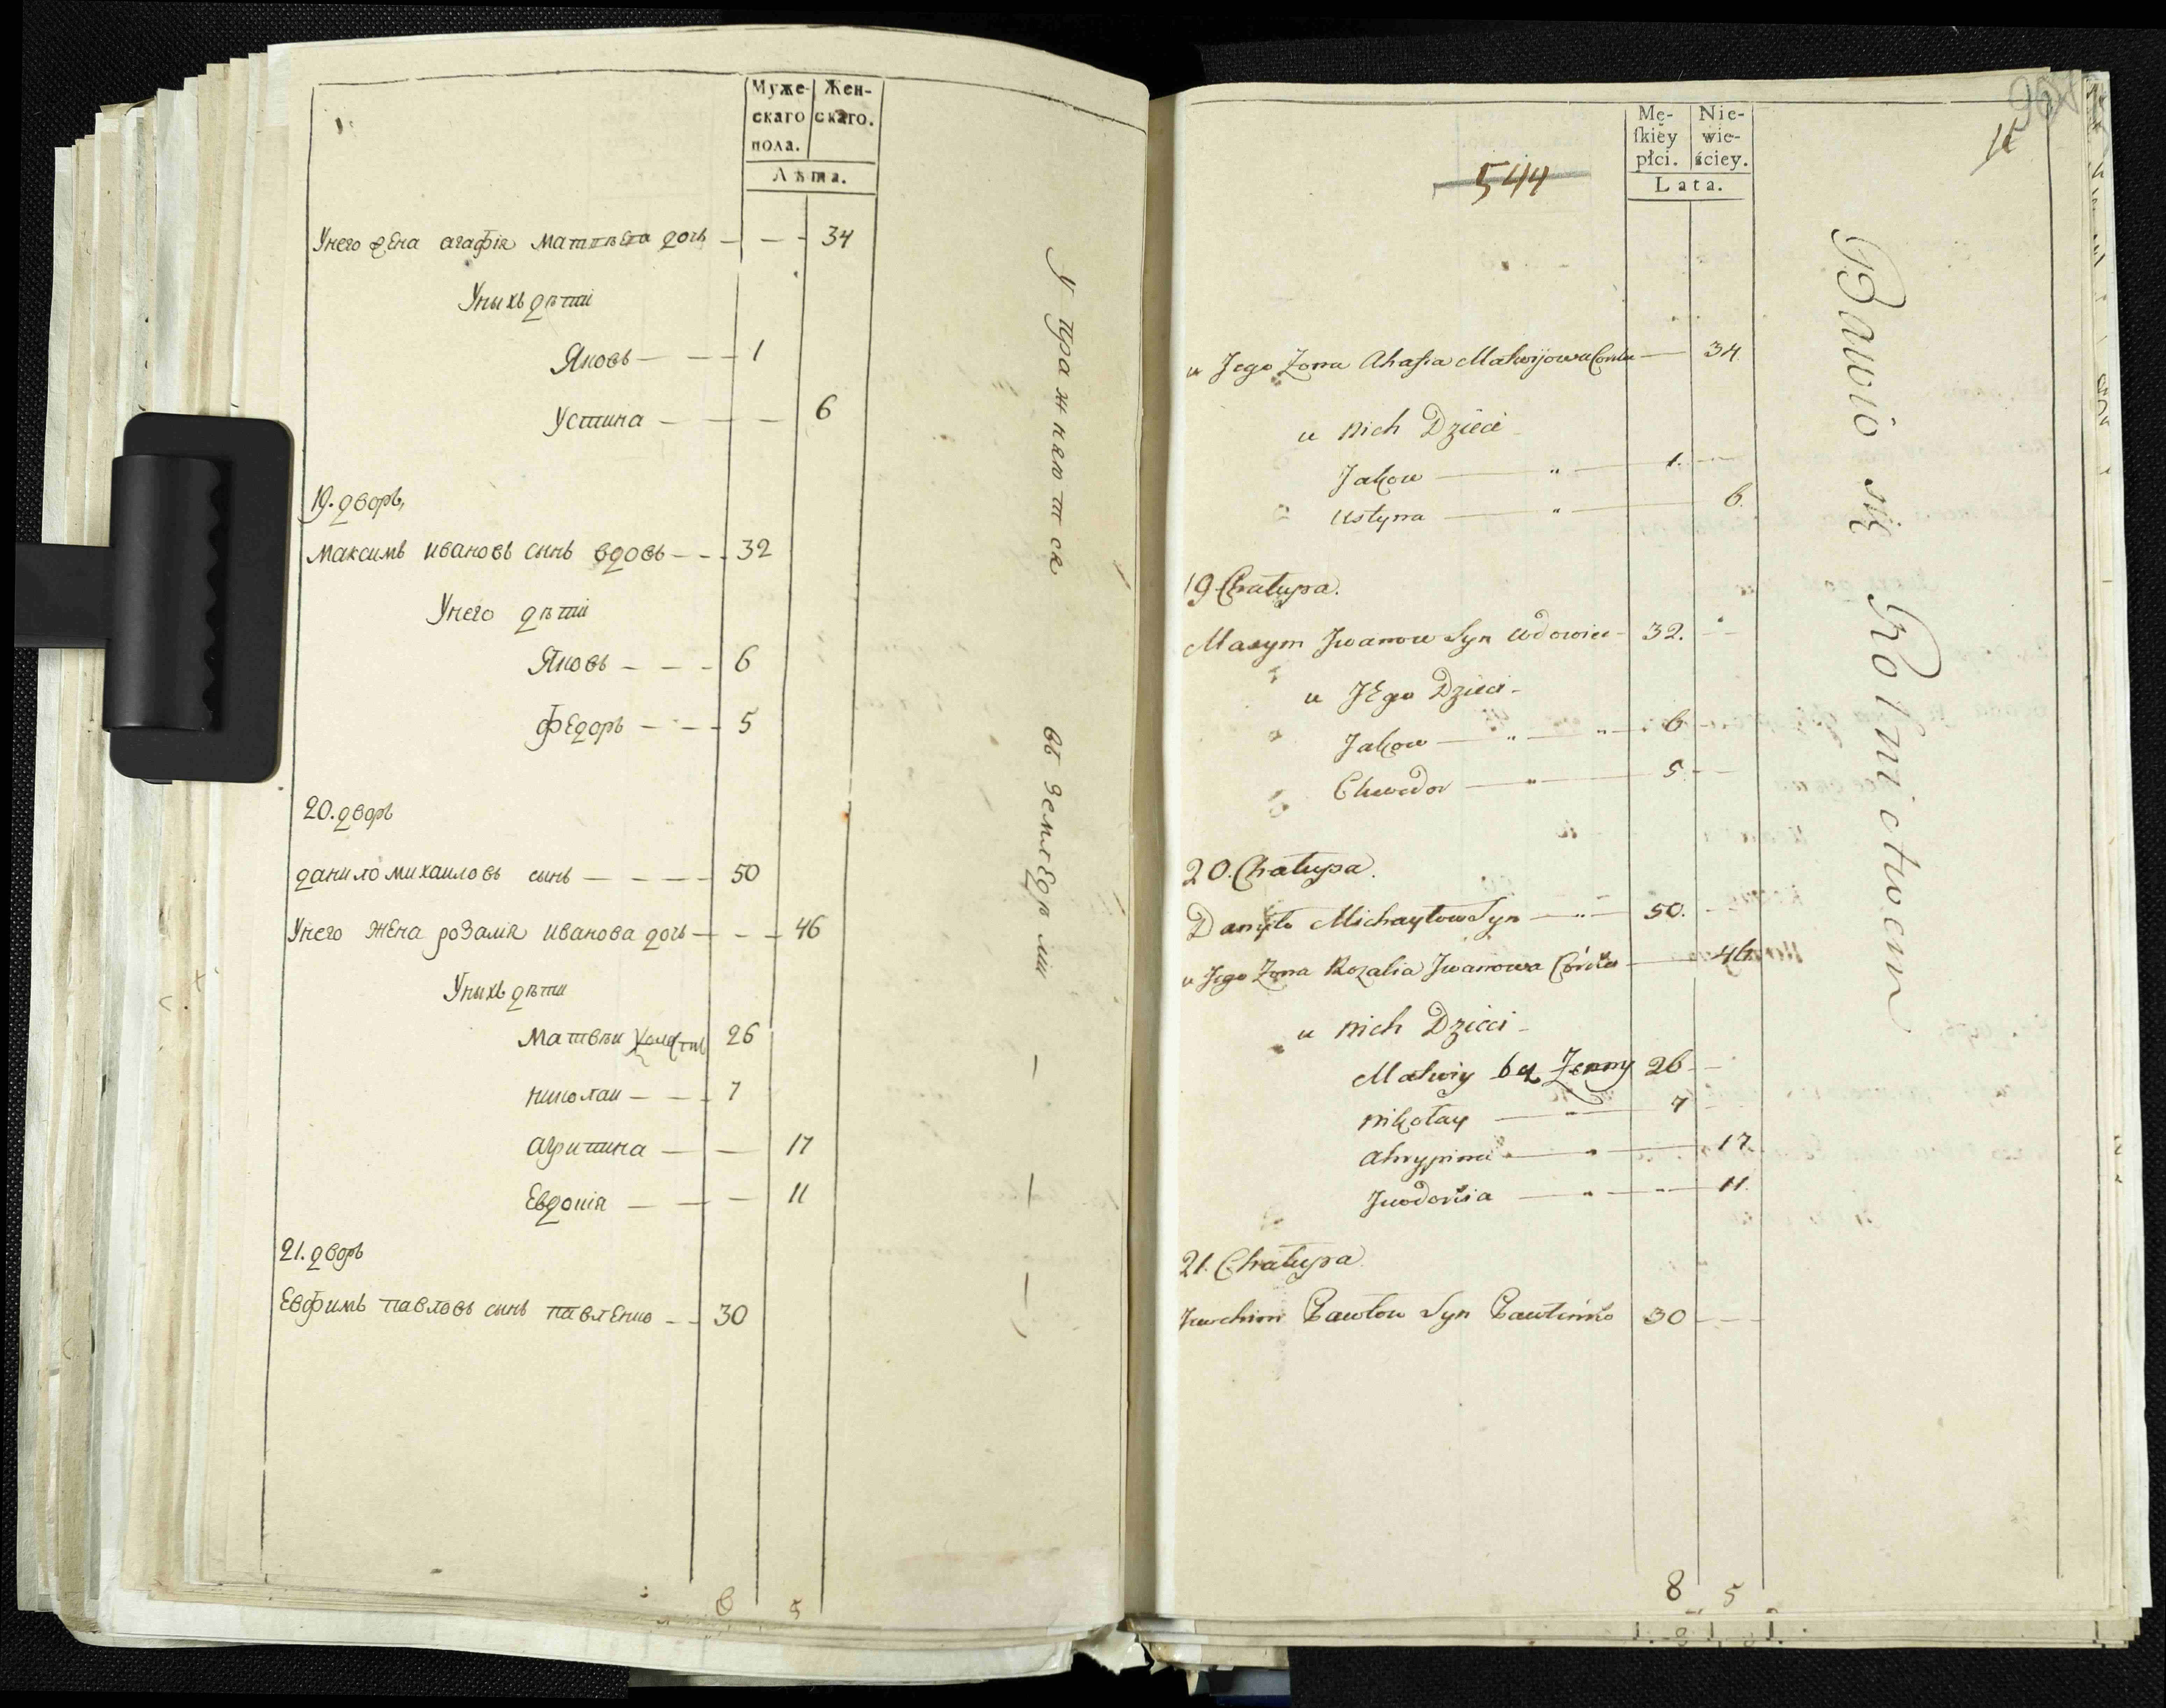 Муже-
скаго
пола.
Жен-
скаго.
Лѣта.
Унего жена агафія матвѣева дочь — — — 34
Унихъ дѣти
Яковъ — — — 1
Устина — — — 6
19. дворъ,
Максимъ ивановъ сынъ вдовъ — — — 32
Унего дѣти
Яковъ — — — 6
Федоръ — — — 5
20. дворъ
данило михаиловъ сынъ — — — — 50
Унего жена розалія иванова дочь — — — 46
Унихъ дѣти
Матвѣи холостъ 26
николаи — — — 7
агрипина — — 17
Евдокія — — — 11
21. дворъ
Евфимъ павловъ сынъ павленко — — 30
8 5
Упражняются въ земледѣліи — — —
544
Mę-
skiéy
płci.
Nie-
wie-
ściey.
Lata.
11
u Jego Żona Ahafia Matwijowa Corka — 34.
u nich Dzieci
Jakow — " — 1. —
Ustyna — " — 6.
19 Chałupa.
Maxym Iwanow Syn Wdowiec — 32. — —
u Jego Dzieci —
Jakow — " — " — 6 —
Chwedor — " — 5. — —
20. Chałupa.
Danyło Michayłow Syn — " — 50. —
u Jego Żona Rozalia Iwanowa Córka — 46
u nich Dzieci —
Matwiy bez Żenny 26 — —
Nikołay — " — 7 —
Ahrypina — " — 17.
Jwdokia — " — " — 11.
21. Chałupa.
Jwchim Pawłow Syn Pawlenko 30 — — —
8 5
Bawio się Rolnictwem